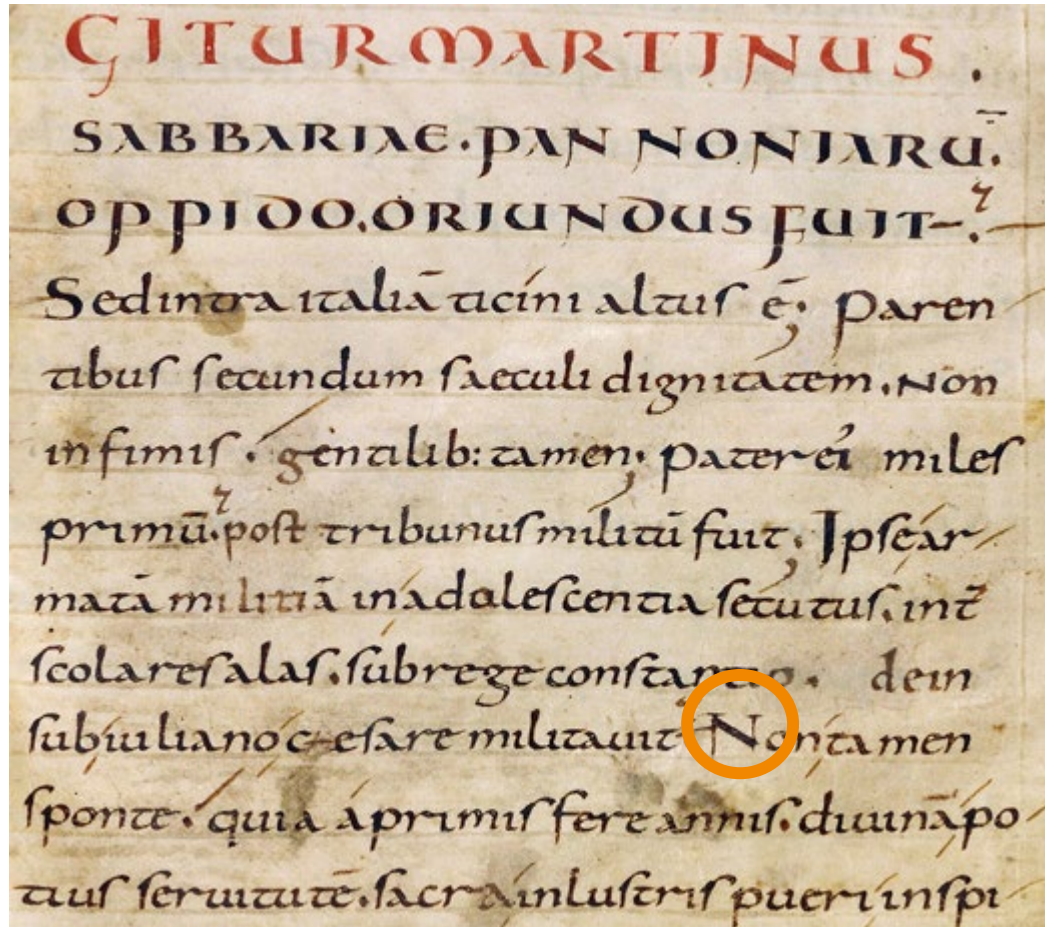 GITUR MARTINUS.
SABBARIAE. PANNONIARŪ.
OPPIDO. ORIUNDUS FUIT
Sed intra italiā ticini altus ē; Paren
tibus secundum saeculi dignitatem. Non
infimis. gentilib: tamen; Pater ei miles
primū. post tribunus militū fuit; Ipse ar
matā militiā in adolescentia secutus. int̄
scolares alas. sub rege constantio. dein
sub iuliano cesare militauit Non tamen
sponte. quia a primis fere annis. diuinā po
tius seruitutē. sacra inlustris pueri inspi